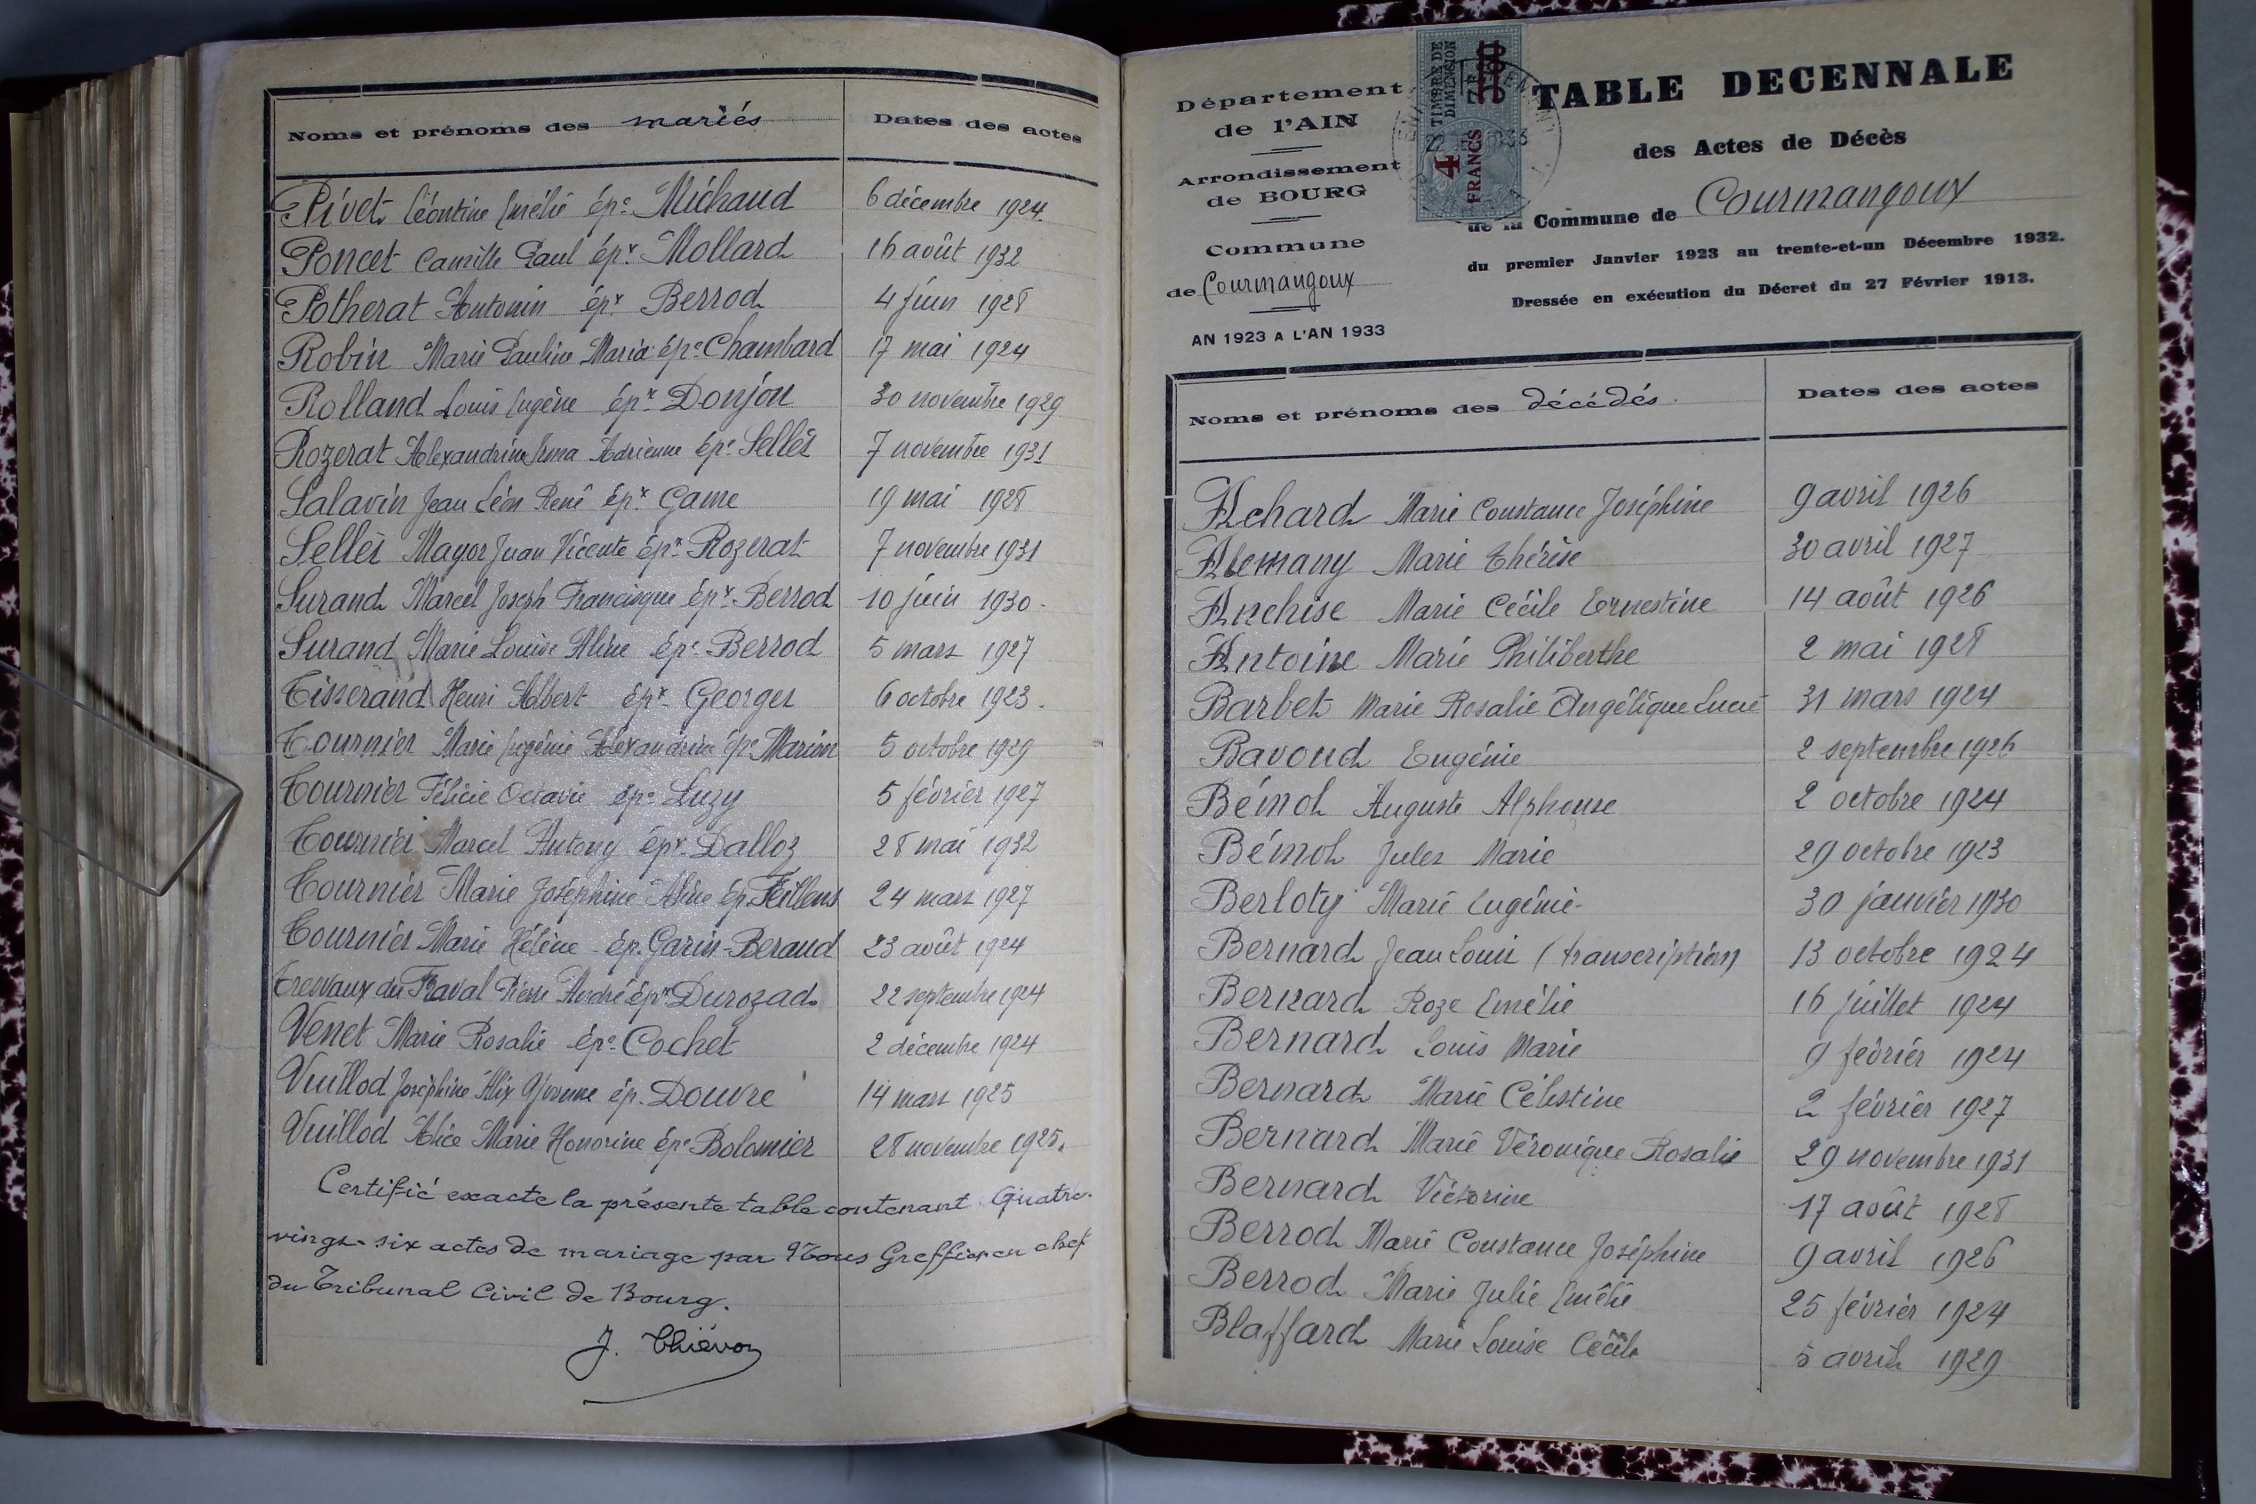 Noms et prénoms des mariés Dates des actes
Pivet Léontine Emélie épe Michaud 6 décembre 1924
Poncet Camille Paul épx Mollard 16 août 1932
Potherat Antonin épx Berrod 4 juin 1928
Robin Marie Pauline Maria épe Chambard 17 mai 1924
Rolland Louis Eugène épx Donjon 30 novembre 1929
Rozerat Alexandrine Irma Adrienne épe Sellès 7 novembre 1931
Salavin Jean Léon René épx Game 19 mai 1928
Sellès Mayor Juan Vicente épx Rozerat 7 novembre 1931
Surand Marcel Joseph Francisque épx Berrod 10 juin 1930
Surand Marie Louise Aline épe Berrod 5 mars 1927
Tisserand Henri Albert épx Georges 6 octobre 1923
Tournier Marie Eugénie Alexandrine épe Marion 5 octobre 1929
Tournier Félicie Octavie épe Luzy 5 février 1927
Tournier Marcel Antony épx Dalloz 28 mai 1932
Tournier Marie Joséphine Aline ép. Feillens 24 mars 1927
Tournier Marie Hélène ép. Garin-Beraud 23 août 1924
Tresvaux du Fraval Pierre André épx Durozad 22 septembre 1924
Venet Marie Rosalie épe Cochet 2 décembre 1924
Vuillod Joséphine Alix Yvonne ép. Douvre 14 mars 1925
Vuillod Alice Marie Honorine épe Bolomier 28 novembre 1925.
Certifié exacte la présente table contenant Quatre-
vingt-six actes de mariage par Nous Greffier en chef
du Tribunal Civil de Bourg.
J. Thiévon
Département
de l'AIN
Arrondissement
de BOURG
Commune
de Courmangoux
AN 1923 A L'AN 1933
TIMBRE DE
DIMENSION
4 FRANCS
TABLE DECENNALE
des Actes de Décès
de la Commune de Courmangoux
du premier Janvier 1923 au trente-et-un Décembre 1932.
Dressée en exécution du Décret du 27 Février 1913.
Noms et prénoms des décédés. Dates des actes
Achard Marie Constance Joséphine 9 avril 1926
Alemany Marie Thérèse 30 avril 1927
Anchise Marie Cécile Ernestine 14 août 1926
Antoine Marie Philiberthe 2 mai 1928
Barbet Marie Rosalie Angélique Lucie 31 mars 1924
Bavoud Eugénie 2 septembre 1926
Bémol Auguste Alphonse 2 octobre 1924
Bémol Jules Marie 29 octobre 1923
Berloty Marie Eugénie 30 janvier 1930
Bernard Jean Louis (transcription) 13 octobre 1924
Bernard Roze Emélie 16 juillet 1924
Bernard Louis Marie 9 février 1924
Bernard Marie Célestine 2 février 1927
Bernard Marie Véronique Rosalie 29 novembre 1931
Bernard Victorine 17 août 1928
Berrod Marie Constance Joséphine 9 avril 1926
Berrod Marie Julie Emélie 25 février 1924
Blaffard Marie Louise Cécile 5 avril 1929